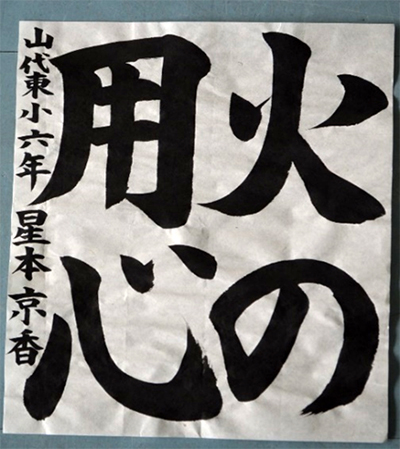 火の
用心
山代東小六年 星本京香